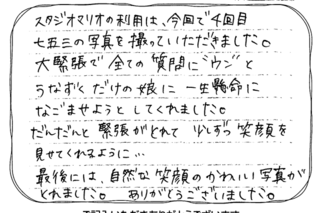 スタジオマリオの利用は、今回で4回目
七五三の写真を撮っていただきました。
大緊張で全ての質問に"ウン"と
うなずくだけの娘に一生懸命に
なごませようとしてくれました。
だんだんと緊張がとれて少しずつ笑顔を
見せてくれるように…
最後には、自然な笑顔のかわいい写真が
とれました。ありがとうございました。